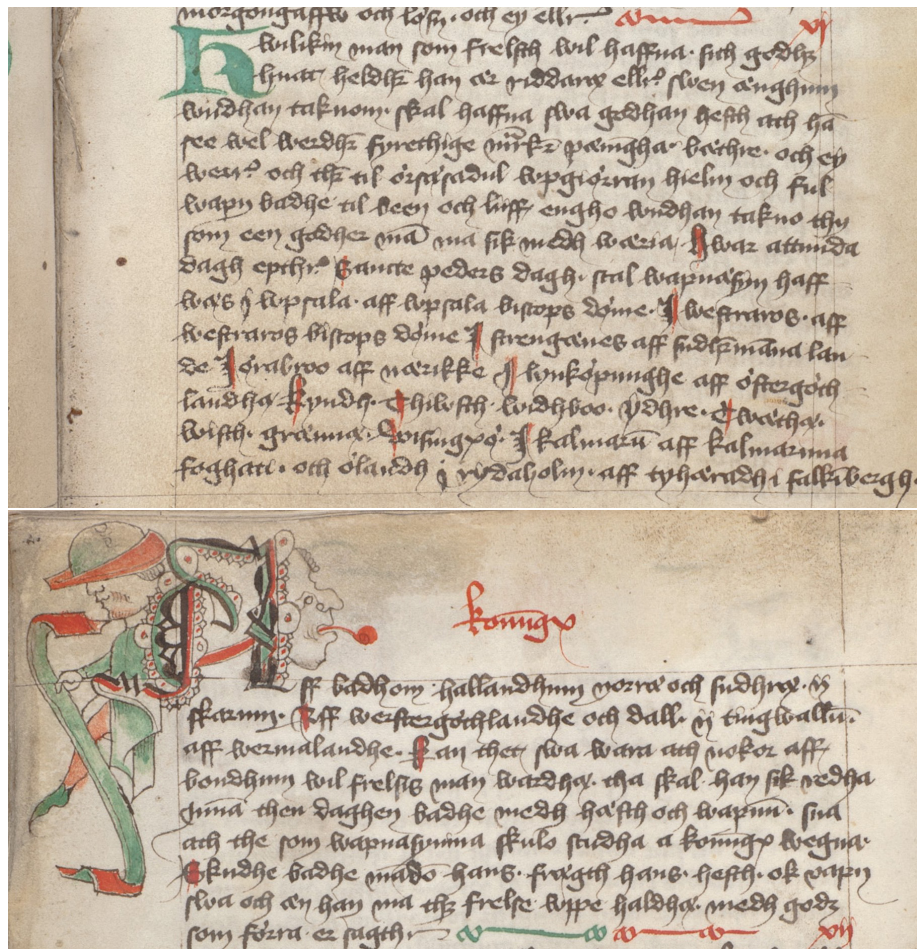 morgongaffw och lösn · och ey ellr xi
Hwilikin man som frelsth wil haffua · sith godhz
huat heldh han är riddare ellr swen ænghum
vndhan taknom · skal haffua swa godhan hesth ath hā
see wel werdh fyrethige mrkr pæningha · bæthre · och ey
werr och til örsasadul vpgiörran hielm och ful
wapn badhe til been och liiff engho vndhan takno thy
som een godher mā ma sik medh wæria · Hwar attunda
dagh epthr Sancte peders dagh · skal wapnasyn haff
was j vpsala · aff vpsala biscops döme · J westraros · aff
westraros biscops döme J strengænes aff sudhrmāna lan
de J örabroo aff nærikke J lynköpunghe aff östergöth
landha kyndh · Thilosth · widhboo · ydhre · Twætha ·
wisth · grænna · Wisingxö · J kalmarū aff kalmarnna
foghati · och ölandh j rydaholm · aff tyhæradh i falkwbergh ·
konūgx
Aff badhom · hallandhum norræ och sudhræ · ij
skarum · Aff werstergöthlandhe och dall · ij tingwallū ·
aff wermalandhe · Kan thet swa wara ath nokor aff
bondhum wil frelsis man wardha · tha skal han sik redha
jnnā then daghen badhe medh hæsth och wapnū · sua
ath the som wapnasynina skulo studha a konūgx wegna ·
Skudhe badhe mādo hans · frægth hans · hesth · ok vapn
swa och æn han ma thz frelse vppe haldha · medh godz
som förra er sagth xii